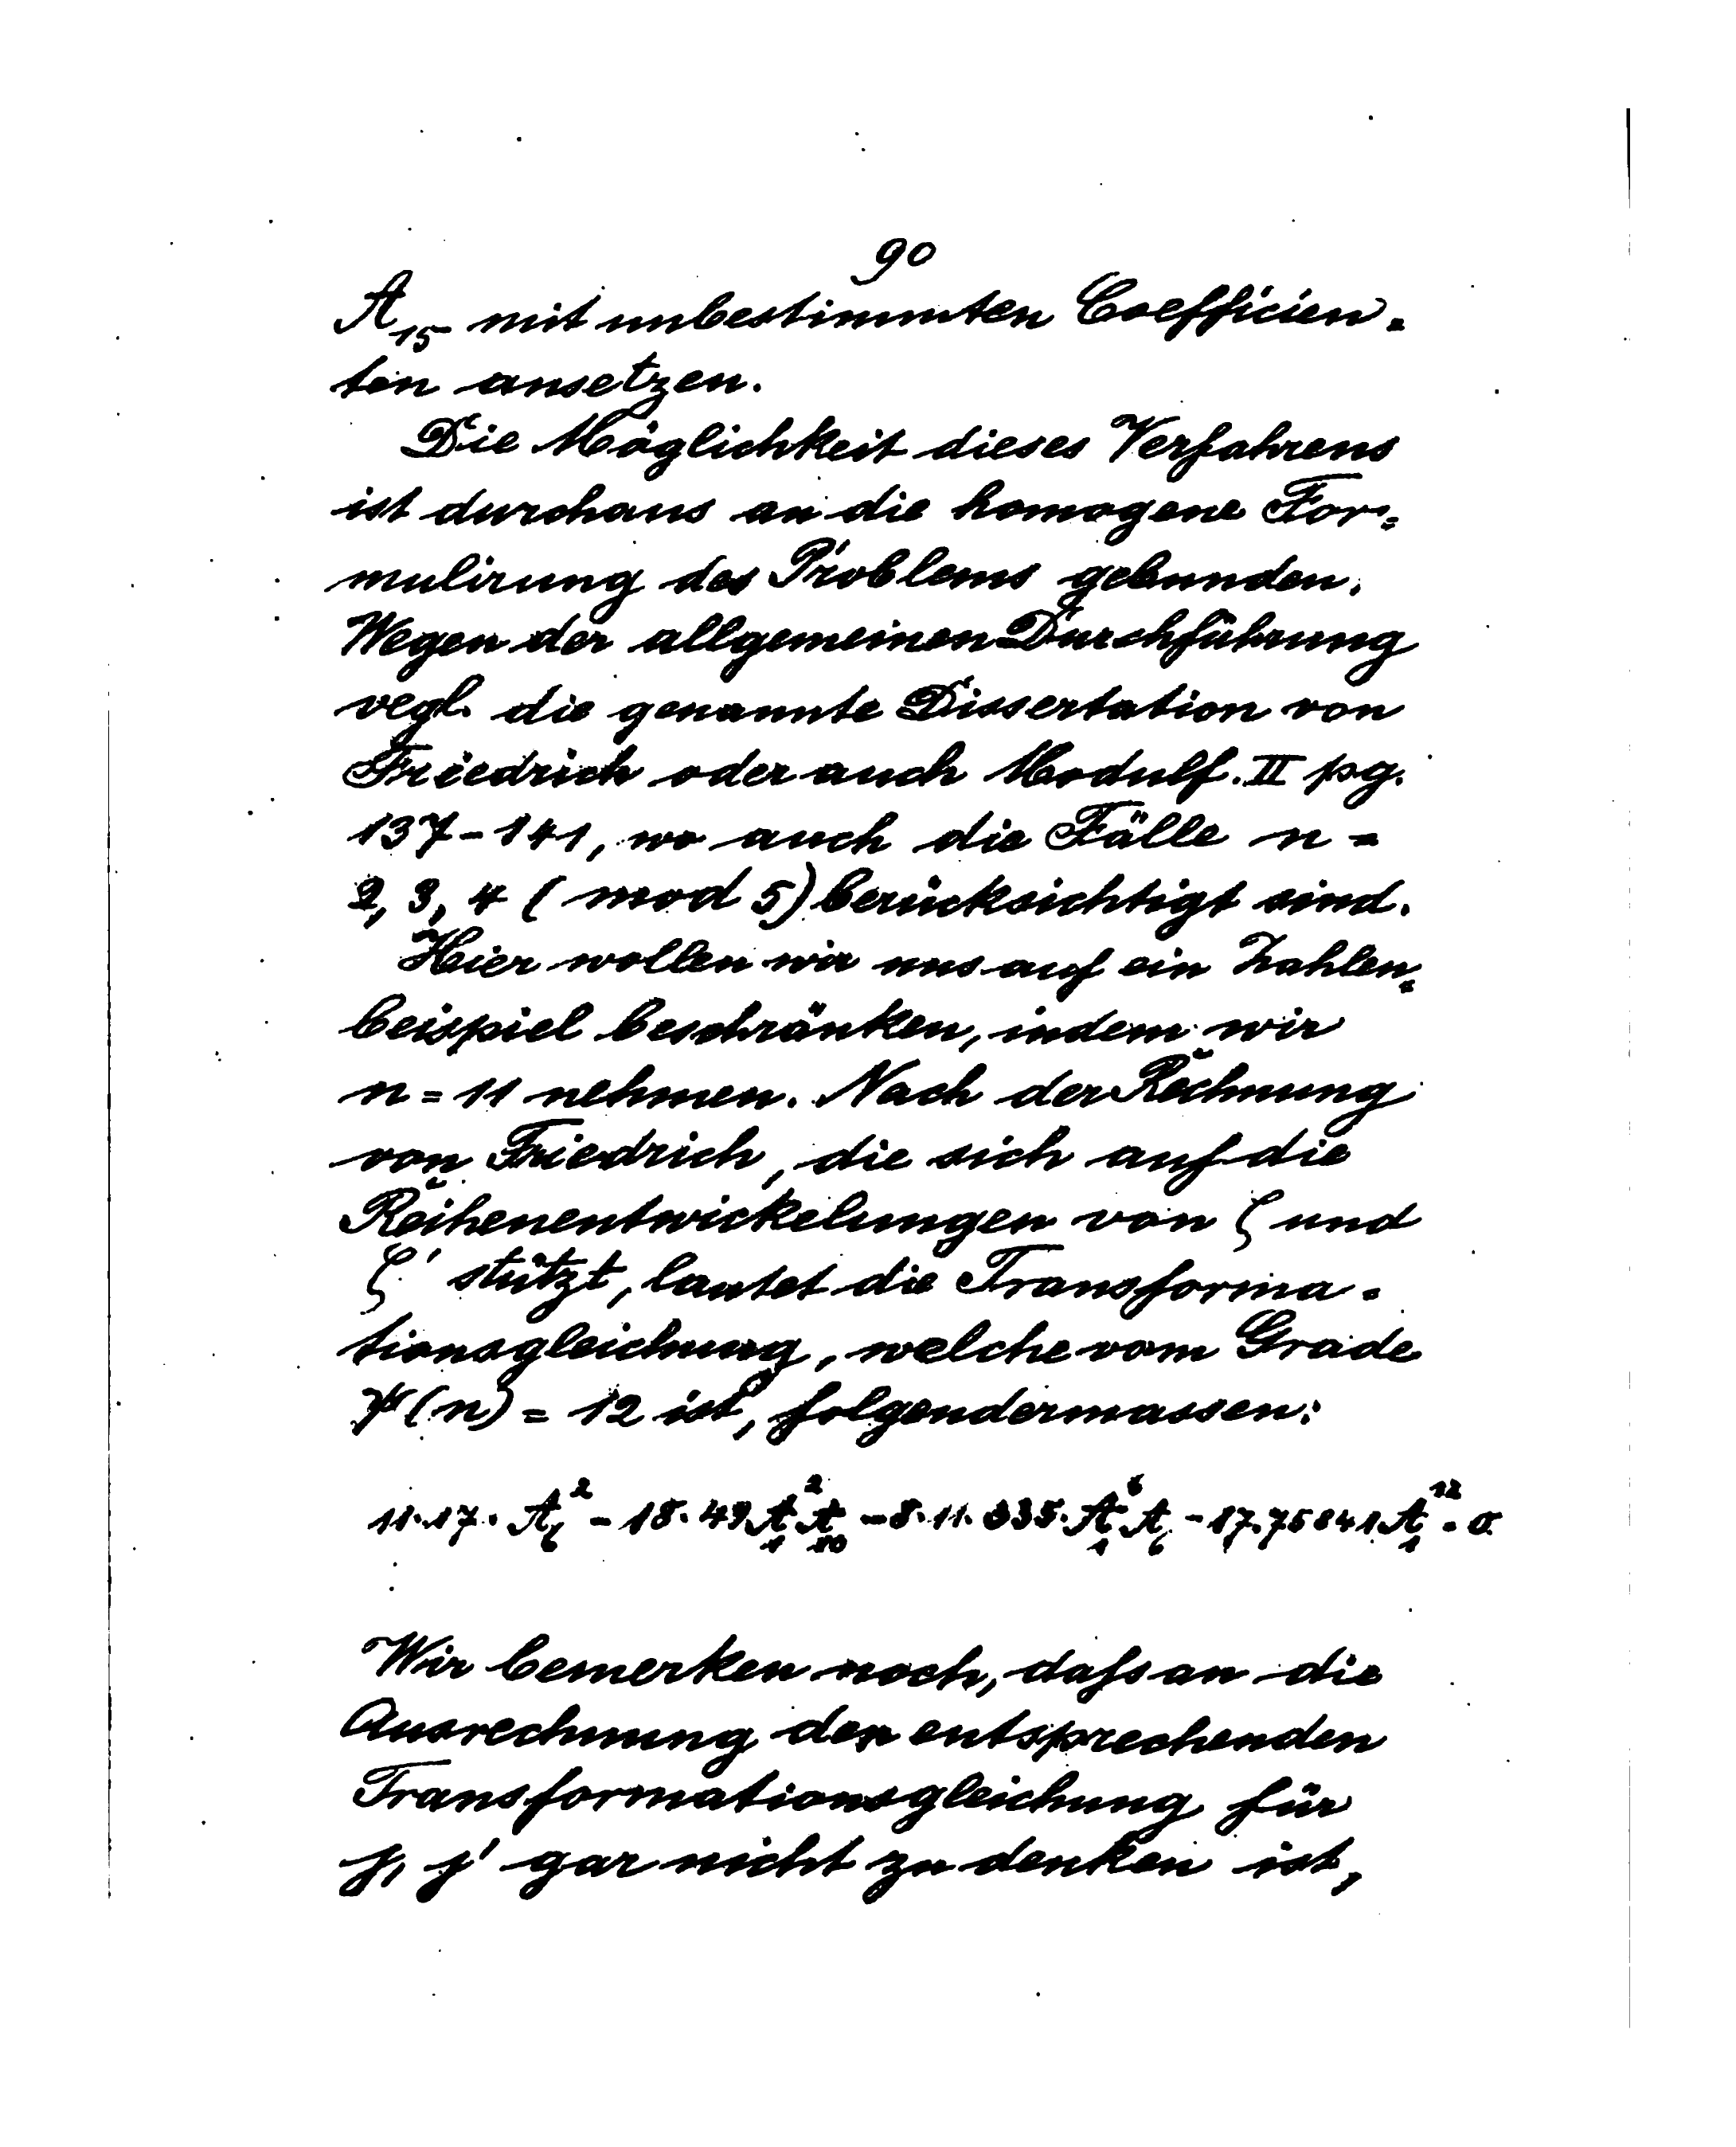 90
A₁₅ mit unbestimmten Coefficien=
ten ansetzen.
Die Möglichkeit dieses Verfahrens
ist durchaus an die homogene For=
mulirung des Problems gebunden.
Wegen der allgemeinen Durchführung
vegl. die genannte Dissertation von
Friedrich oder auch Modulf. II pg.
137-141, wo auch die Fälle n =
2, 3, 4 (mod 5) berücksichtigt sind.
Hier wollen wir uns auf ein Zahlen=
beispiel beschränken, indem wir
n = 11 nehmen. Nach der Rechnung
von Friedrich, die sich auf die
Reihenentwickelungen von ζ und
ζ' stützt, lautet die Transforma=
tionsgleichung, welche vom Grade
ψ(n) = 12 ist, folgendermassen:
11·17· A₆² - 18·49 A₁² A₁₀ - 8·11· 335· A₁⁶ A₆ - 17·75841 A₁¹² = 0
Wir bemerken noch, daſs an die
Ausrechnung der entsprechenden
Transformationsgleichung für
j, j' gar nicht zu denken ist,